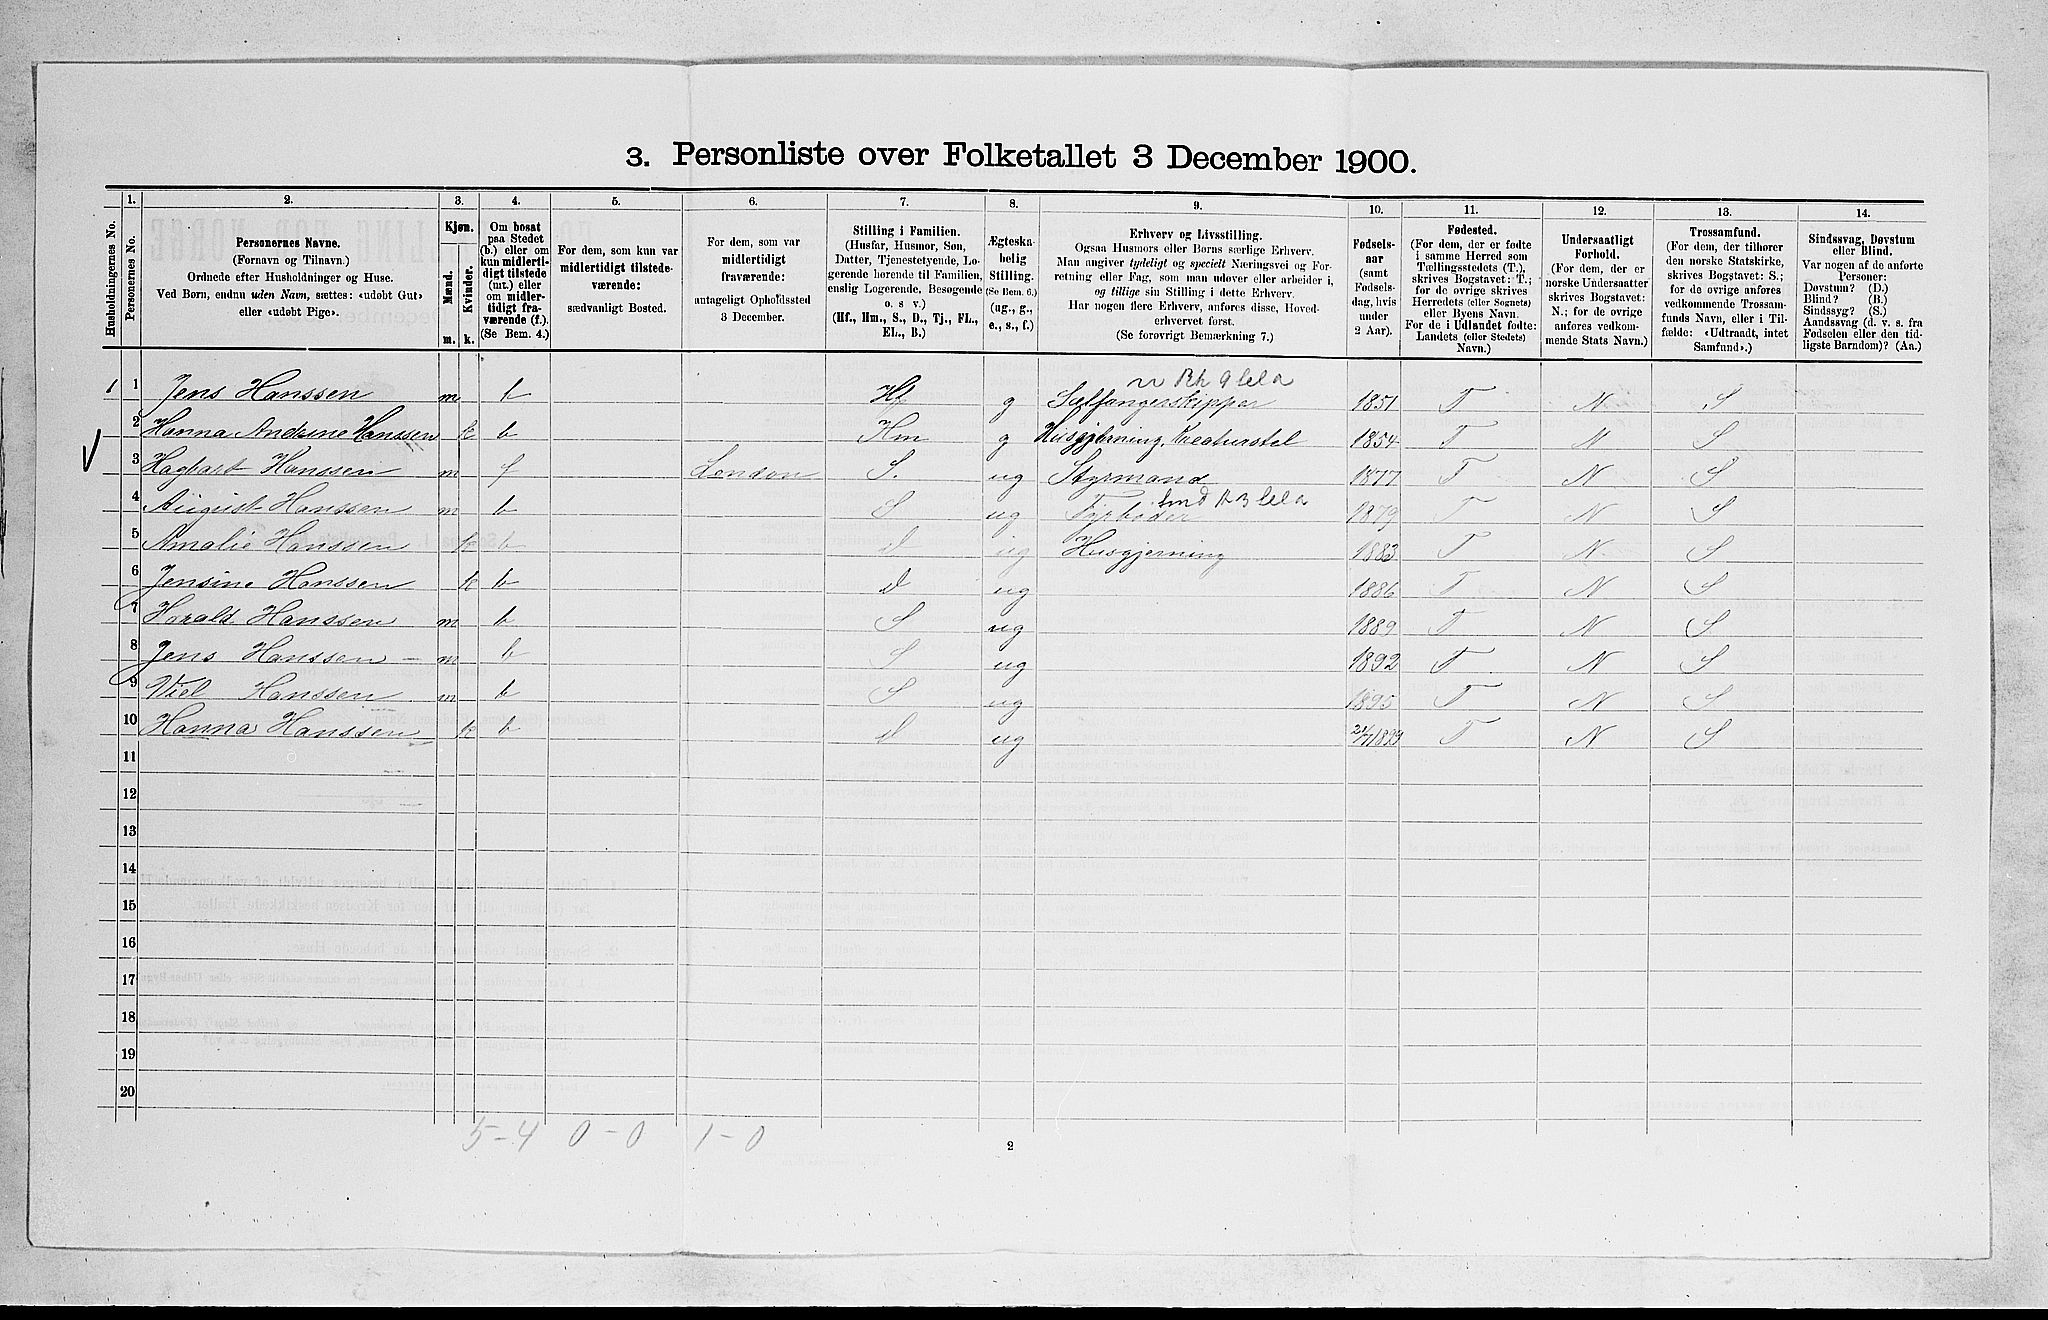 3. Personliste over Folketallet 3 December 1900.
1. 2. 3. 4. 5. 6. 7. 8. 9. 10. 11. 12. 13. 14.
Husholdningernes No.
Personernes No.
Personernes Navne.
(Fornavn og Tilnavn.)
Ordnede efter Husholdninger og Huse.
Ved Børn, endnu uden Navn, sættes: «udøbt Gut»
eller «udøbt Pige».
Kjøn.
Mænd.
Kvinder.
m. k.
Om bosat
paa Stedet
(b.) eller om
kun midlerti-
digt tilstede
(mt.) eller
om midler-
tidigt fra-
værende (f.).
(Se Bem. 4.)
For dem, som kun var
midlertidigt tilstede-
værende:
sædvanligt Bosted.
For dem, som var
midlertidigt
fraværende:
antageligt Opholdssted
3 December.
Stilling i Familien.
(Husfar, Husmor, Søn,
Datter, Tjenestetyende, Lo-
gerende hørende til Familien,
enslig Logerende, Besøgende
o. s v.)
(Hf., Hm., S., D., Tj., FL.,
EL., B.)
Ægteska-
belig
Stilling.
(Se Bem. 6.)
(ug., g.,
e., s., f.)
Erhverv og Livsstilling.
Ogsaa Husmors eller Børns særlige Erhverv.
Man angiver tydeligt og specielt Næringsvei og For-
retning eller Fag, som man udøver eller arbeider i,
og tillige sin Stilling i dette Erhverv.
Har nogen flere Erhverv, anføres disse, Hoved-
erhvervet først.
(Se forøvrigt Bemærkning 7.)
Fødsels-
aar
(samt
Fødsels-
dag, hvis
under
2 Aar).
Fødested.
(For dem, der er fødte
i samme Herred som
Tællingsstedets (T.),
skrives Bogstavet: T.;
for de øvrige skrives
Herredets (eller Sognets)
eller Byens Navn.
For de i Udlandet fødte:
Landets (eller Stedets)
Navn.)
Undersaatligt
Forhold.
(For dem, der er
norske Undersaatter
skrives Bogstavet:
N.; for de øvrige
anføres vedkom-
mende Stats Navn.)
Trossamfund.
(For dem, der tilhører
den norske Statskirke,
skrives Bogstavet: S.;
for de øvrige anføres
vedkommende Trossam-
funds Navn, eller i Til-
fælde: «Udtraadt, intet
Samfund».)
Sindssvag, Døvstum
eller Blind.
Var nogen af de anførte
Personer:
Døvstum? (D.)
Blind? (B.)
Sindssyg? (S.)
Aandssvag (d. v. s. fra
Fødselen eller den tid-
ligste Barndom)? (Aa.)
1 1 Jens Hanssen m b Hf g Sælfangerskipper 1851 T N S
2 Hanna Andrine Hanssen k b Hm g Husgjerning, Kreaturstel 1854 T N S
3 Hagbart Hanssen m f London S. ug Styrmand 1877 T N S
4 August Hanssen m b S ug Fyrbøder 1879 T N S
5 Amalie Hanssen k b d ug Husgjerning 1883 T N. S
6 Jensine Hanssen k b d ug 1886 T N S
7 Harald Hanssen m b S ug 1889 T N S
8 Jens Hanssen m b S ug 1892 T N S
9 Hanssen m b S ug 1895 T N S
10 Hanna Hanssen k b d ug 1899 T N S
11
12
13
14
15
16
17
18
19
20
5-4 0-0 1-0
2